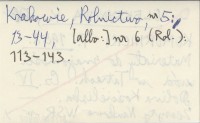 Krakowie, Rolnictwo, nr 5:
13-44, [albo:] nr 6 (Rol.):
113-143.